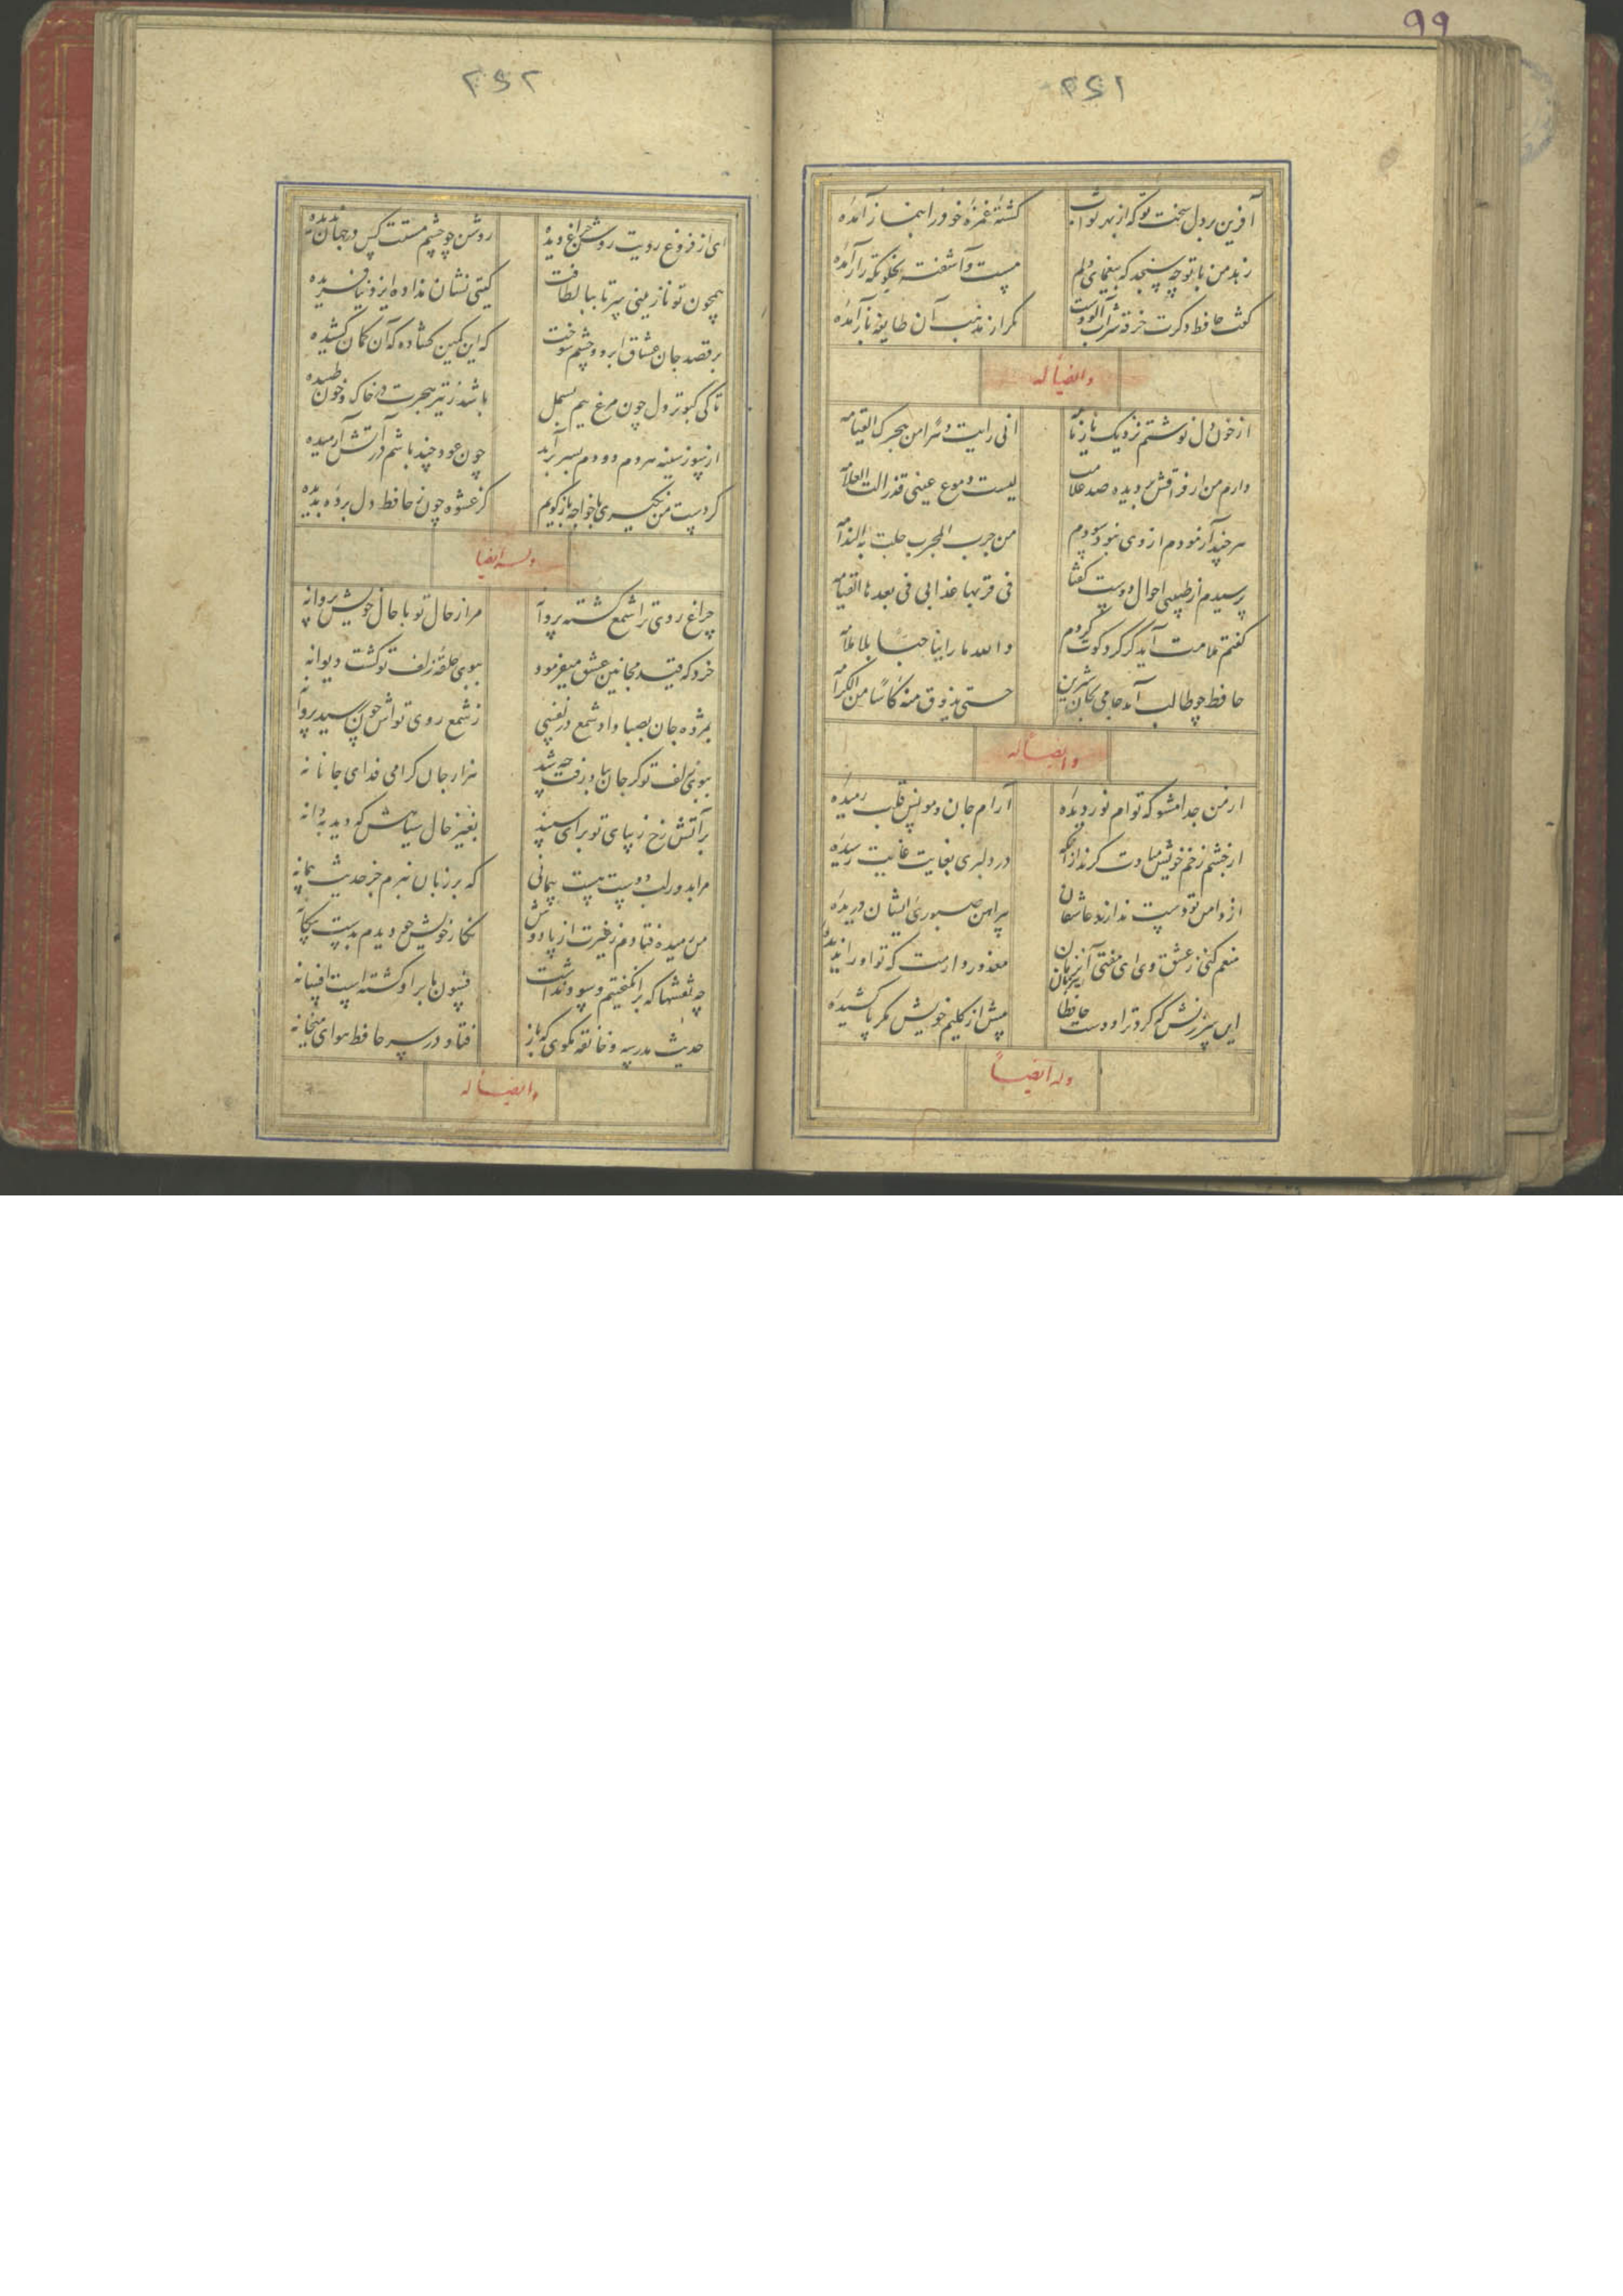 ۹۹
۲۵۱
آفرین بر دل سخت تو که از بهر ثواب
کشته غمزه خود را بنماز آمده
زهد من با تو چه سنجد که بیغمای دلم
مست و آشفته بخلوتگه راز آمده
گفت حافظ دگرت خرقه شراب آلودست
مگر از مذهب آن طایفه باز آمده
وایضاً له
از خون دل نوشتم نزدیک یار نامه
انی رایت دهرا من هجرک القیامه
دارم من از فراقش در دیده صد علامت
لیست دموع عینی هذا لنا العلامه
هر چند آزمودم از وی نبود سودم
من جرب المجرب حلت به الندامه
پرسیدم از طبیبی احوال دوست گفتا
فی قربها عذابی فی بعدها القیامه
گفتم ملامت آید گر گرد کوت گردم
والله ما راینا حبا بلا ملامه
حافظ چو طالب آمد جامی بجان شیرین
حتی یذوق منه کاسا من الکرامه
وایضاً له
از من جدا مشو که توام نور دیده
آرام جان و مونس قلب رمیده
از چشم زخم خویش مبادت گزند از آنکه
در دلبری بغایت غایت رسیده
از دامن تو دست ندارند عاشقان
پیراهن صبوری ایشان دریده
منعم کنی ز عشق وی ای مفتی زمان
معذور دارمت که تو او را ندیده
این سرزنش که کرد ترا دوست حافظا
بیش از گلیم خویش مگر پا کشیده
وله ایضاً
۲۵۲
ای از فروغ رویت روشن چراغ دیده
روشن چو چشم مستت کس در جهان ندیده
همچون تو نازنینی سر تا بپا لطافت
گیتی نشان نداده ایزد نیافریده
بر قصد جان عشاق ابرو و چشم شوخت
که این کمین گشاده که آن کمان کشیده
تا کی کبوتر دل چون مرغ نیم بسمل
باشد ز تیر هجرت در خاک و خون طپیده
از سوز سینه هر دم دودم بسر بر آید
چون عود چند باشم در آتش آرمیده
گر دست من نگیری با خواجه باز گویم
کز عشوه چون ز حافظ دل برده بدیده
وله ایضا
چراغ روی ترا شمع گشته پروانه
مرا ز حال تو با حال خویش پروانه
خرد که قید مجانین عشق میفرمود
ببوی حلقه زلف تو گشت دیوانه
بمژده جان بصبا داد شمع در نفسی
ز شمع روی تواش چون رسید پروانه
ببوی زلف تو گر جان بباد رفت چه شد
هزار جان گرامی فدای جانانه
بر آتش رخ زیبای تو برای سپند
بغیر خال سیاهش که دید به دانه
مرا بدور لب دوست هست پیمانی
که بر زبان نبرم جز حدیث پیمانه
من رمیده فتادم ز غیرت از پا دوش
نگار خویش چو دیدم بدست بیگانه
چه نقشها که بر انگیختیم و سود نداشت
فسون ما بر او گشته است افسانه
حدیث مدرسه و خانقه مگوی که باز
فتاد در سر حافظ هوای میخانه
وایضاً له